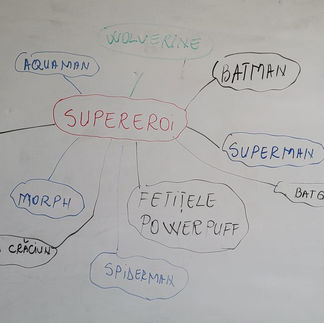 WOLVERINE
AQUAMAN
BATMAN
SUPEREROI
SUPERMAN
MORPH
FETIȚELE
POWERPUFF
BATG
CRĂCIUN
SPIDERMAN